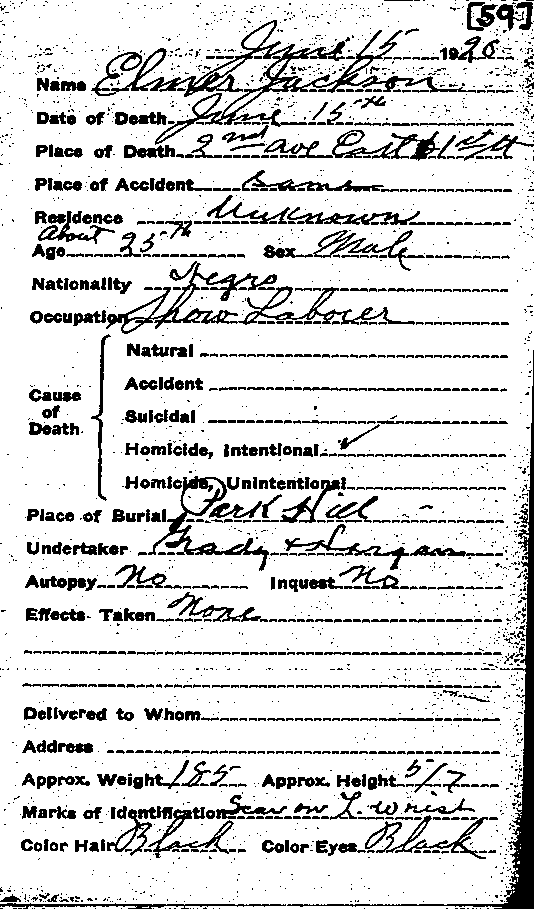 [59]
June 15 1920
Name Elmer Jackson
Date of Death June 15th
Place of Death 2nd ave East & 1st St
Place of Accident Same
Residence Unknown
About
Age 25th Sex Male
Nationality Negro
Occupation Show Laborer
Natural
Accident
Cause of Death
Suicidal
Homicide, Intentional ✓
Homicide, Unintentional
Place of Burial Park Hill
Undertaker Grady & Horgan
Autopsy No Inquest No
Effects Taken None
Delivered to Whom
Address
Approx. Weight 185 Approx. Height 5/7
Marks of Identification Scar on L. wrist
Color Hair Black Color Eyes Black